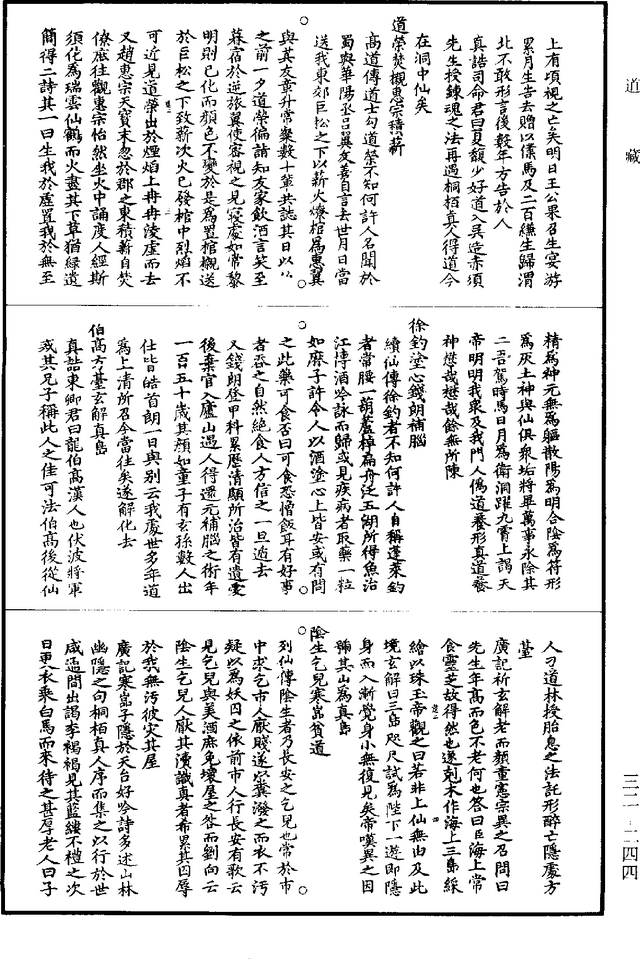 道藏
三二—二四四
上有頃視之亡矣明日王公果召生宴游
累月生告去贈以僕馬及二百縑生歸渭
北不敢形言後數年方告於人
真誥司命君曰夏馥少好道入吳造赤須
先生授鍊魂之法再遇桐栢真人得道今
在洞中仙矣
道榮焚櫬惠宗積薪
高道傳道士勾道榮不知何許人名聞於
蜀與華陽丞吕翼友善自言去世月日當
送我東郊巨松之下以薪火燎棺爲惠翼
與其友章升常粲數十輩共誌其日以為
之前一夕道榮徧詣知友家飲酒言笑至
暮宿於逆旅翼使密視之見寢處如常黎
明則已化而顔色不變於是爲置棺櫬送
於巨松之下致薪次火已發棺中烈焰不
可近見道榮出於煙焰上冉冉淩虛而去
又趙惠宗天寶末忽於郡之東積薪自焚
僚庶往觀惠宗怡然坐火中誦度人經斯
須化爲瑞雲仙鶴而火盡其下草猶緑遺
簡得二詩其一曰生我於虛置我於無至
精爲神元無爲軀散陽爲明合陰爲符形
爲灰土神與仙俱衆垢將畢萬事永除其
二吾駕時馬日月爲衛洞躍九霄上謁天
帝明明我衆及我門人僞道養形真道養
神懋哉懋哉餘無所陳
徐釣塗心錢朗補腦
續仙傳徐釣者不知何許人自稱蓬萊釣
者常腰一葫蘆棹扁舟泛五湖所得魚治
江博酒吟詠而歸或見疾病者取藥一粒
如麻子許令人以酒塗心上皆安或有問
之此藥可食否曰可食恐憎飯耳有好事
者吞之自然絶食人方信之一旦遁去
又錢朗登甲科累歷清顯所治皆有遺愛
後棄官入廬山遇人得還元補腦之術年
一百五十歲其顔如童子有玄孫數人出
仕皆皓首朗一日與别云我處世多年道
爲上清所召今當往矣遂解化去
伯高方臺玄解真島
真誥東卿君曰龍伯高漢人也伏波將軍
戒其兄子稱此人之佳可法伯高後從仙
人刁道林授胎息之法託形醉亡隱處方
臺
廣記祈玄解老而顔童憲宗異之召問曰
先生年高而色不老何也答曰臣海上常
食靈芝故得然也遂剋木作海上三島綵
繪以珠玉帝觀之曰若非上仙無由及此
境玄解曰三島咫尺試爲陛下一遊即隱
身而入漸覺身小無復見矣帝嘆異之因
號其山爲真島
陰生乞兒寒嵓貧道
列仙傳陰生者乃長安之乞兒也常於市
中求乞市人厭賤遂以糞潑之而衣不污
疑以爲妖囚之依前市人行長安有歌云
見乞兒與美酒庶免壞屋之咎而劉向云
陰生乞兒人厭其瀆識真者希累其囚辱
於我無污彼灾其屋
廣記寒嵓子隱於天台好吟詩多述山林
幽隱之句桐栢真人序而集之以行於世
咸通間出謁李褐褐見其藍縷不禮之次
日更衣乘白馬而來待之甚厚老人曰子